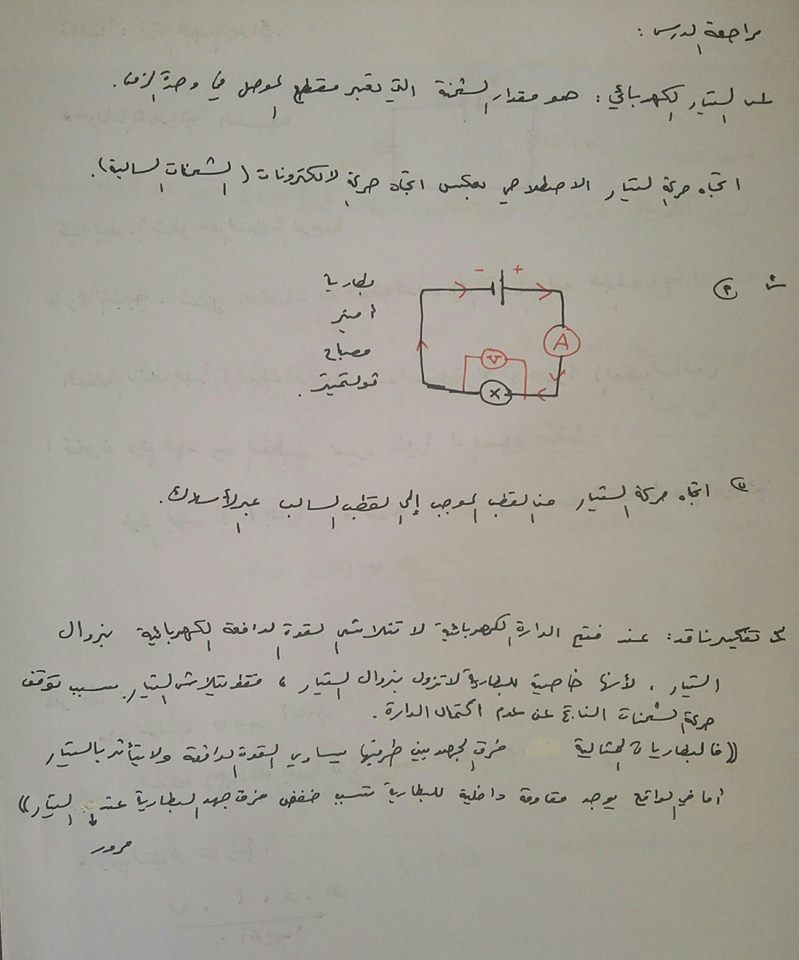 مراجعة الدرس :
س١ التيار الكهربائي : هو مقدار الشحنة التي تعبر مقطع الموصل في وحدة الزمن .
اتجاه حركة التيار الاصطلاحي بعكس اتجاه حركة الالكترونات ( الشحنات السالبة ) .
- +
بطارية
أميتر
A
مصباح
V
فولتميتر .
X
ب اتجاه حركة التيار من القطب الموجب إلى القطب السالب عبر الأسلاك .
تفكير ناقد : عند فتح الدارة الكهربائية لا تتلاشى القوة الدافعة الكهربائية بزوال
التيار ، لأنها خاصية للبطارية لا تزول بزوال التيار ، فقط يتلاشى التيار بسبب توقف
حركة الشحنات الناتج عن عدم اكتمال الدارة .
(( فالبطاريات المثالية فرق الجهد بين طرفيها يساوي القوة الدافعة ولا يتأثر بالتيار
أما في الواقع يوجد مقاومة داخلية للبطارية تسبب خفض فرق جهد البطارية عند مرور التيار ))